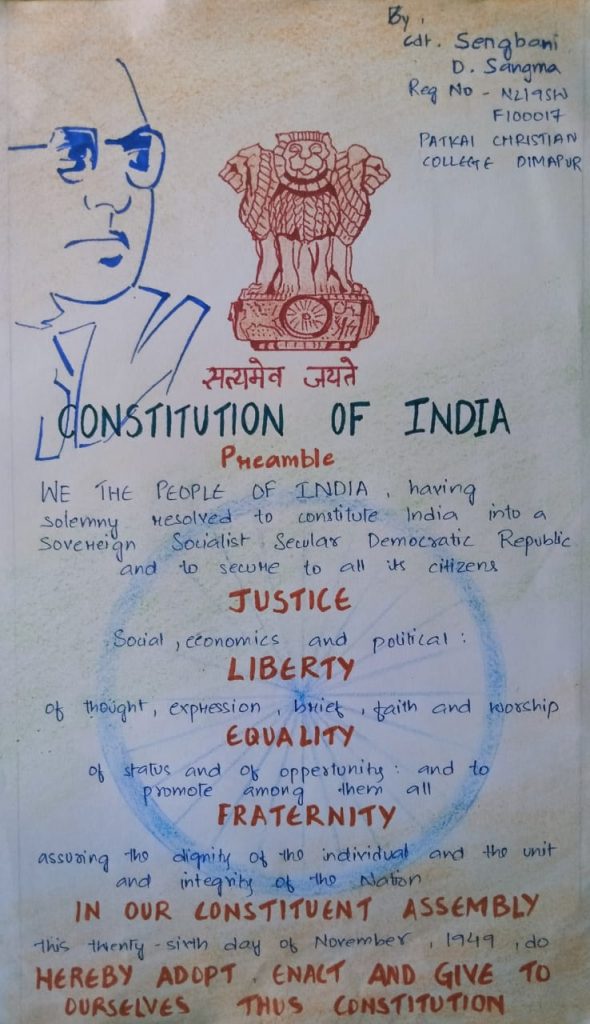 By,
Cdt. Sengbani
D. Sangma
Reg No - NL19SW
F100017
PATKAI CHRISTIAN
COLLEGE DIMAPUR
सत्यमेव जयते
CONSTITUTION OF INDIA
Preamble
WE THE PEOPLE OF INDIA, having
solemny resolved to constitute India into a
Sovereign Socialist Secular Democratic Republic
and to secure to all its citizens
JUSTICE
Social, economics and political:
LIBERTY
of thought, expression, brief, faith and worship
EQUALITY
of status and of oppertunity: and to
promote among them all
FRATERNITY
assuring the dignity of the individual and the unit
and integrity of the Nation
IN OUR CONSTITUENT ASSEMBLY
this twenty-sixth day of November, 1949, do
HEREBY ADOPT, ENACT AND GIVE TO
OURSELVES THUS CONSTITUTION